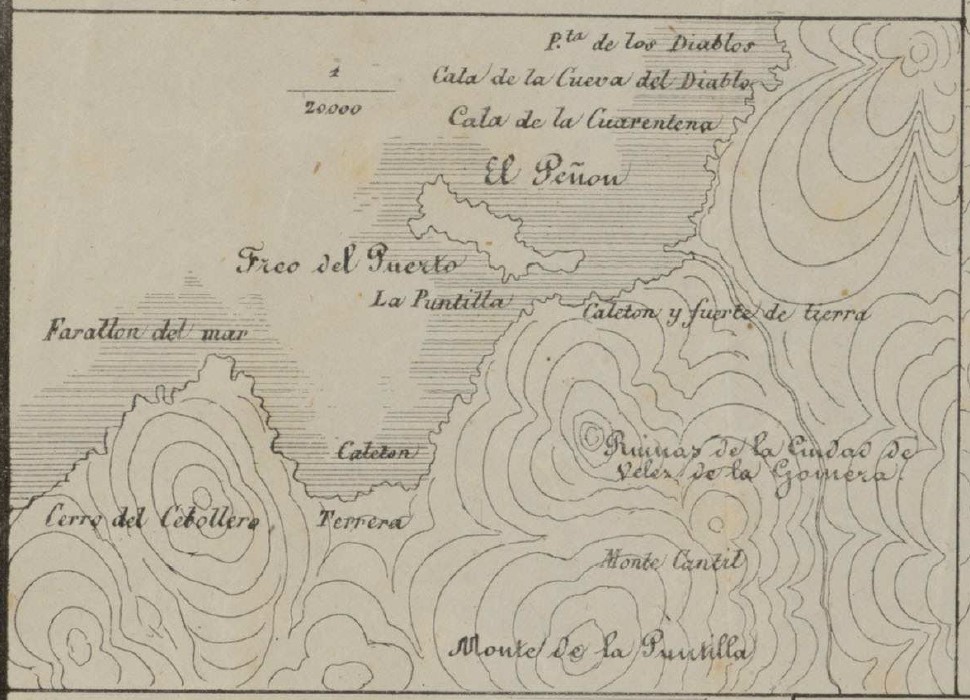 P.ta de los Diablos
1
20.000
Cala de la Cueva del Diablo
Cala de la Cuarentena
El Peñon
Freo del Puerto
La Puntilla
Caleton y fuerte de tierra
Farallon del mar
Caleton
Ruinas de la Ciudad de
Velez de la Gomera.
Cerro del Cebollero
Terrera
Monte Cantil
Monte de la Puntilla